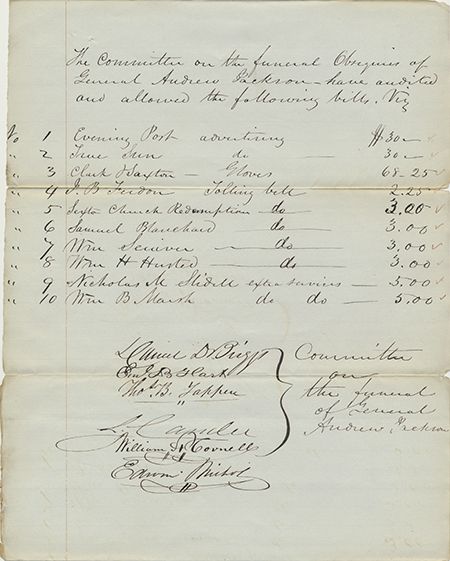 The Committee on the funeral Obsequies of
General Andrew Jackson - have audited
and allowed the following bills. Viz
No 1 Evening Post advertising $30 —
" 2 True Sun do — 30 —
" 3 Clark & Saxton — Gloves 68.25
" 4 J. B. Tolling bell 2.25
" 5 Sexton Church Redemption do — 3.00
" 6 Samuel Blanchard — do — 3.00
" 7 Wm — do — 3.00
" 8 Wm H Husted — do — 3.00
" 9 Nicholas M. Slidell extra services — 5.00
" 10 Wm B Marsh do do — 5.00
Daniel D. Briggs
Clark
Thos B. Tappen
William Cornell
Edwin
Committee
on
the funeral
of General
Andrew Jackson